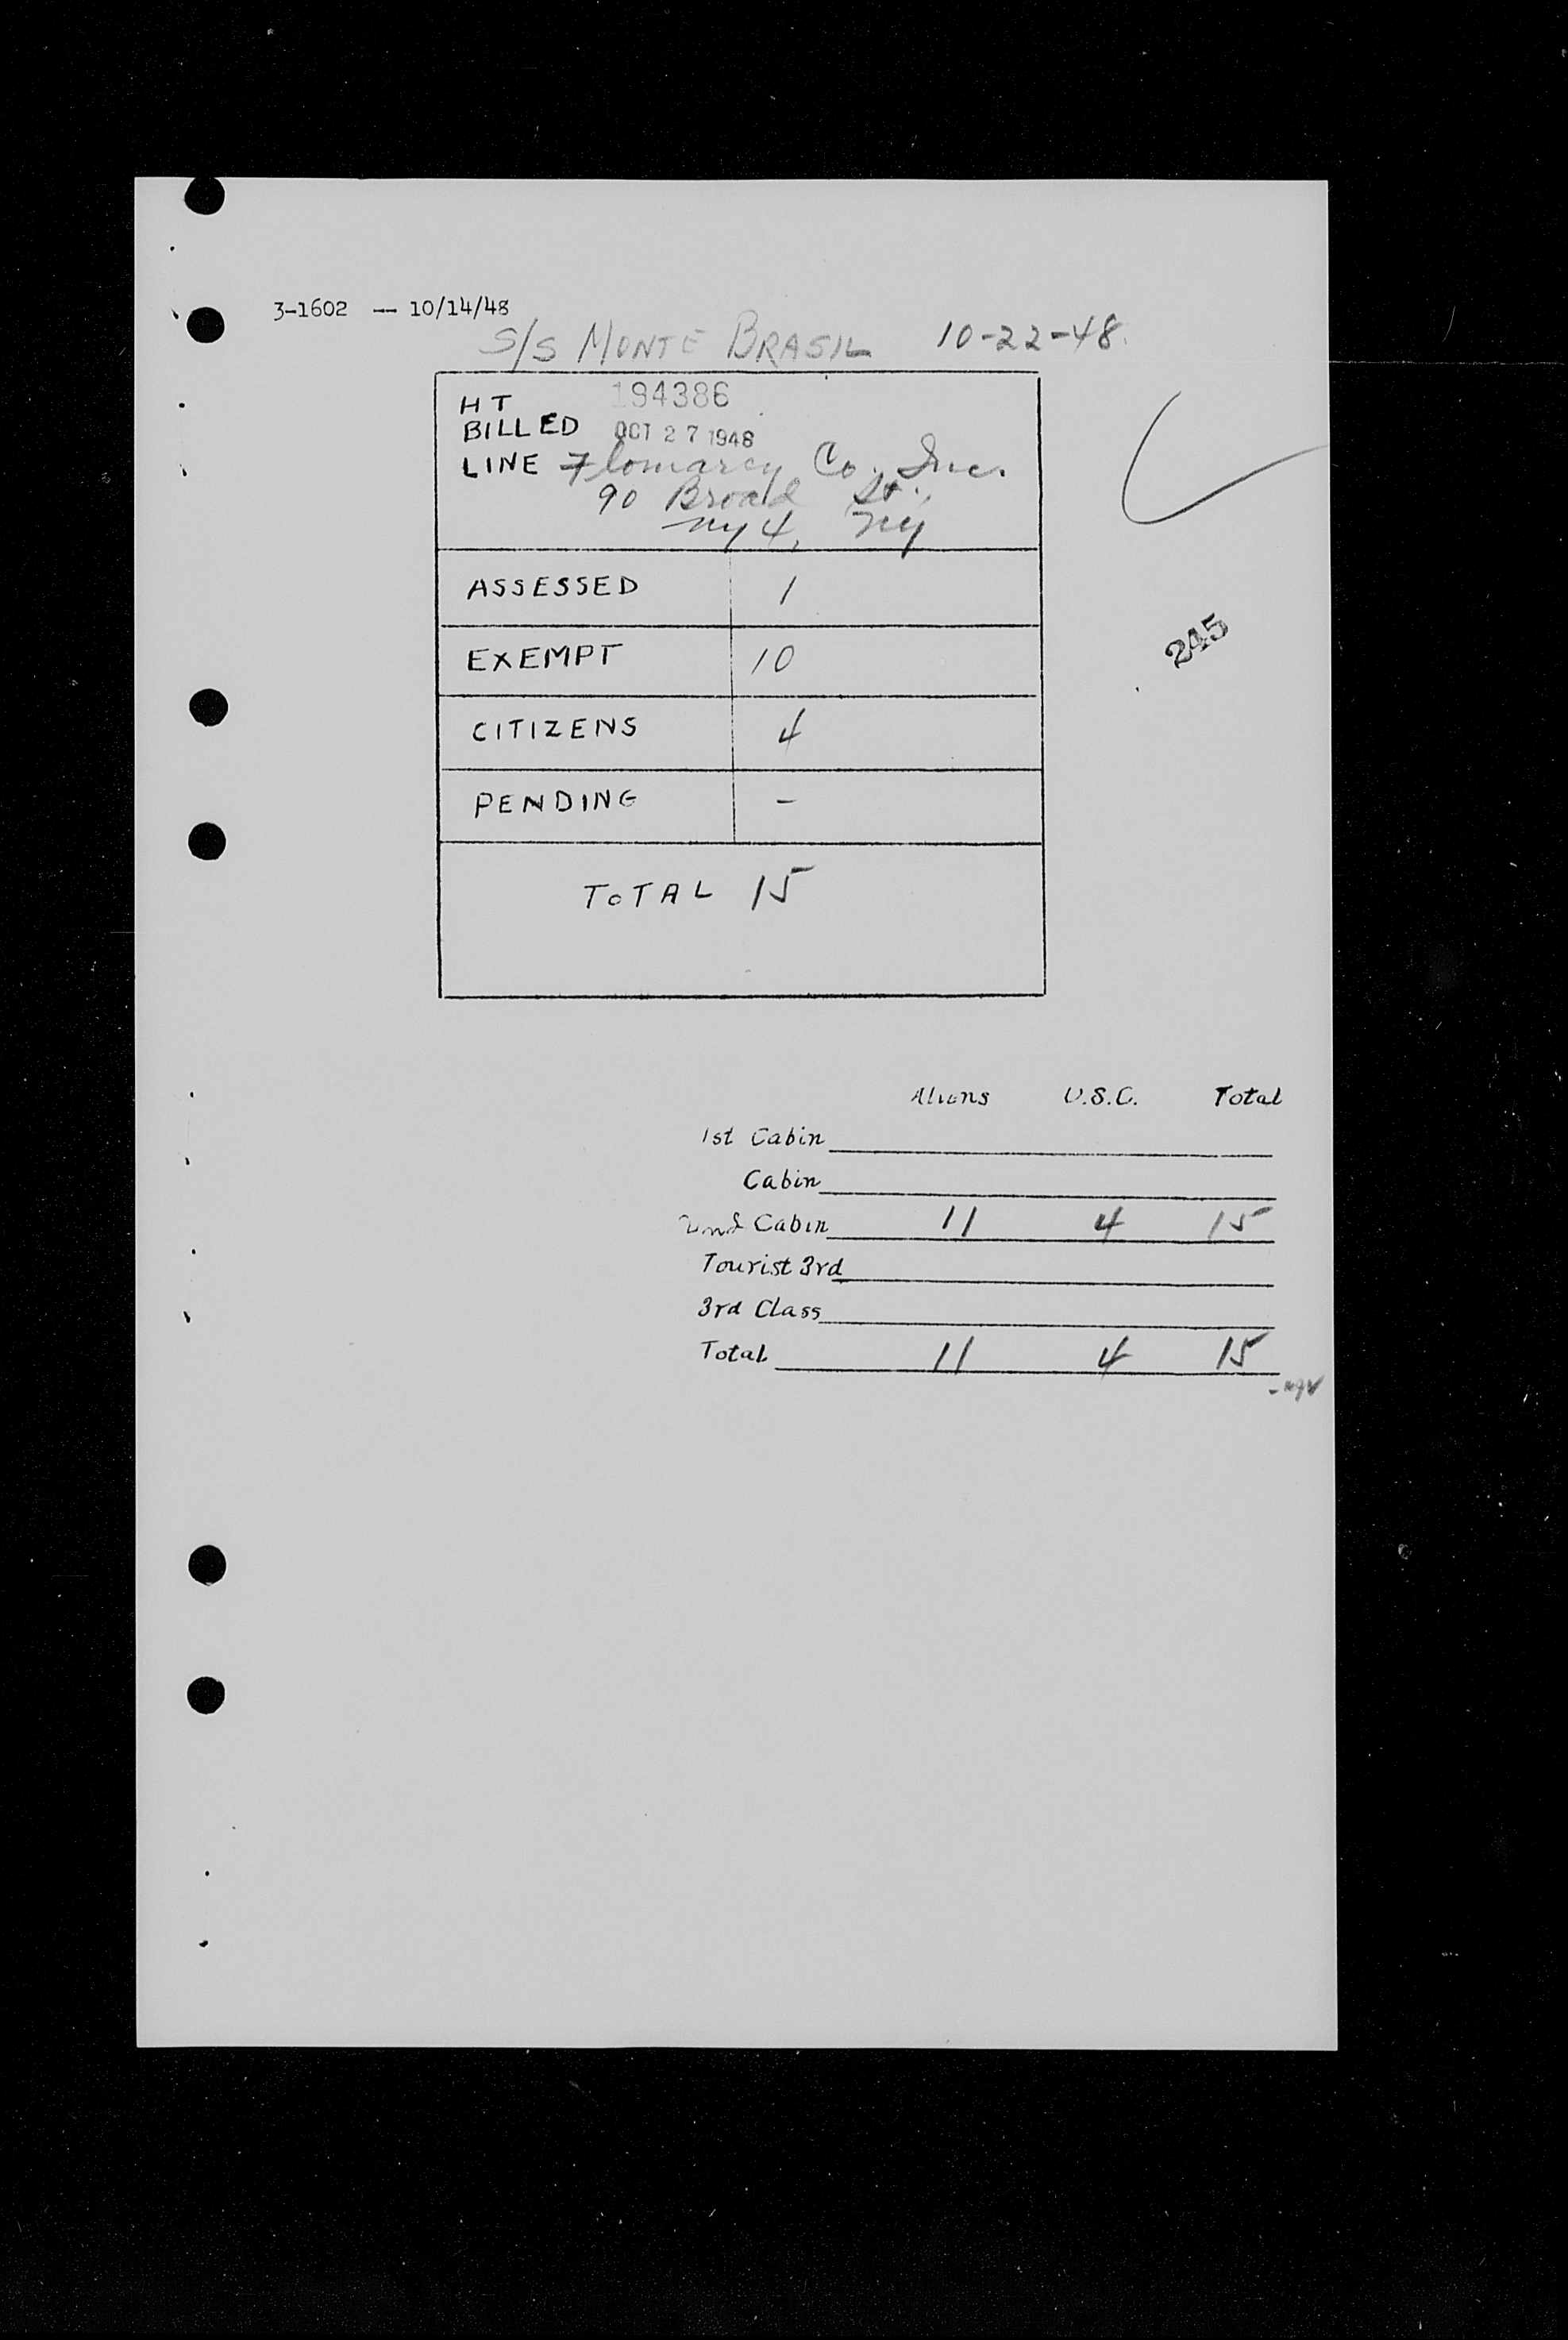 3-1602 -- 10/14/48
S/S MONTE BRASIL 10-22-48.
HT 194386
BILLED OCT 27 1948
LINE Flomarcy Co. Inc.
90 Broad St.,
NY 4, NY
ASSESSED 1
EXEMPT 10
245
CITIZENS 4
PENDING -
TOTAL 15
Aliens U.S.C. Total
1st Cabin
Cabin
2nd Cabin 11 4 15
Tourist 3rd
3rd Class
Total 11 4 15